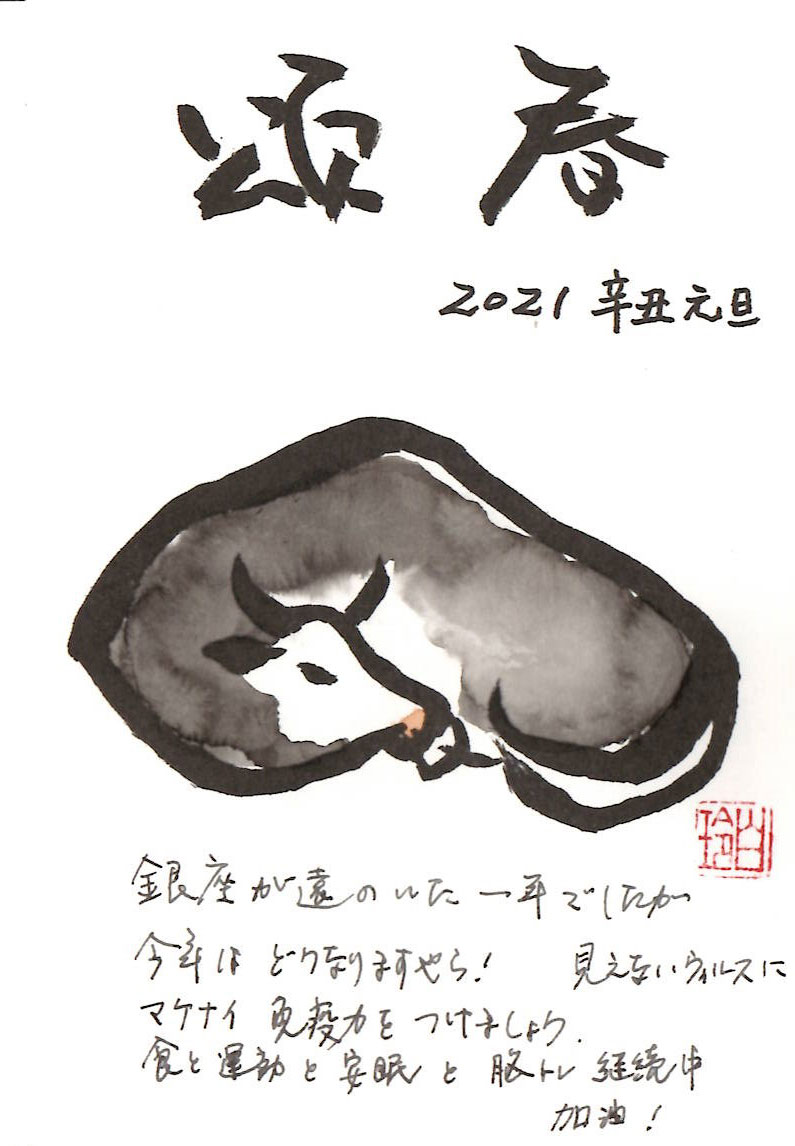 頌春
2021 辛丑元旦
銀座が遠のいた一年でしたが
今年はどうなりますやら! 見えないウィルスに
マケナイ 免疫力をつけましょう.
食と運動と安眠と脳トレ継続中
加油!